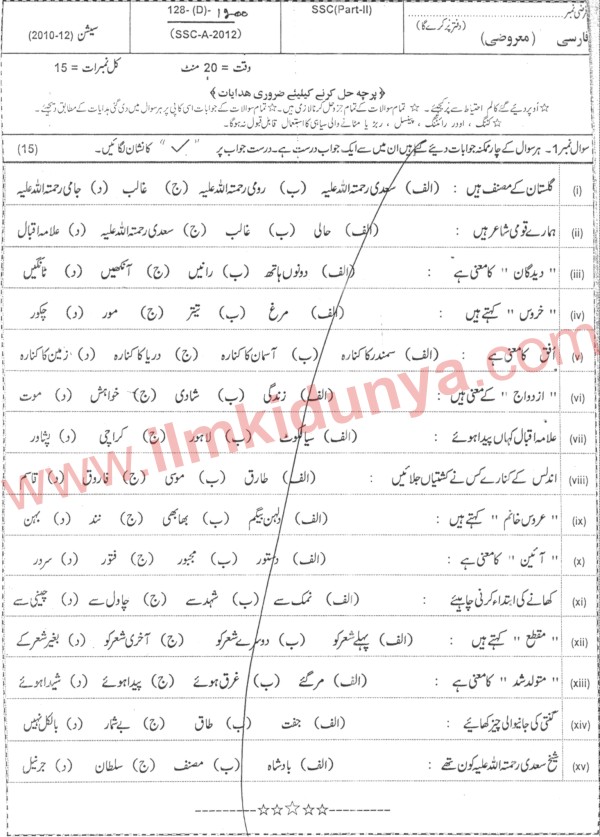 رقمی نمبر
(دفتر پُر کرے گا)
SSC(Part-II)
128- (D)- 1200
فارسی (معروضی)
(SSC-A-2012)
سیشن (2010-12)
وقت = 20 منٹ
کل نمبرات = 15
﴿ پرچہ حل کرنے کیلئیے ضروری ھدایات ﴾
☆ اُوپر دیے گئے کالم احتیاط سے پُر کیجئے۔ ☆ تمام سوالات کے تمام جز و حل کرنا لازمی ہیں۔ ☆ تمام سوالات کے جوابات اسی کاپی پر ہر سوال میں دی گئی ہدایات کے مطابق دیجئیے۔
☆ کٹنگ ، اوور رائٹنگ ، پینسل ، ربڑ یا مٹانے والی سیاہی کا استعمال قابل قبول نہ ہوگا۔
سوال نمبر 1۔ ہر سوال کے چار ممکنہ جوابات دیئے گئے ہیں ان میں سے ایک جواب درست ہے۔ درست جواب پر " ✓ " کا نشان لگائیں۔ (15)
(i) گلستان کے مصنف ہیں : (الف) سعدی رحمتہ اللہ علیہ (ب) رومی رحمتہ اللہ علیہ (ج) غالب (د) جامی رحمتہ اللہ علیہ
(ii) ہمارے قومی شاعر ہیں : (الف) حالی (ب) غالب (ج) سعدی رحمتہ اللہ علیہ (د) علامہ اقبال
(iii) " دیدگان " کا معنی ہے : (الف) دونوں ہاتھ (ب) رانیں (ج) آنکھیں (د) ٹانگیں
(iv) " خروس " کہتے ہیں : (الف) مرغ (ب) تیتر (ج) مور (د) چکور
(v) اُفق کا معنی ہے : (الف) سمندر کا کنارہ (ب) آسمان کا کنارہ (ج) دریا کا کنارہ (د) زمین کا کنارہ
(vi) " ازدواج " کے معنی ہیں : (الف) زندگی (ب) شادی (ج) خواہش (د) موت
(vii) علامہ اقبال کہاں پیدا ہوئے : (الف) سیالکوٹ (ب) لاہور (ج) کراچی (د) پشاور
(viii) اندلس کے کنارے کس نے کشتیاں جلائیں : (الف) طارق (ب) موسی (ج) فاروق (د) قاسم
(ix) " عروس خانم " کہتے ہیں : (الف) دلہن بیگم (ب) بھابھی (ج) نند (د) بہن
(x) " آئین " کا معنی ہے : (الف) دستور (ب) مجبور (ج) فتور (د) سرور
(xi) کھانے کی ابتداء کرنی چاہیئے : (الف) نمک سے (ب) شہد سے (ج) چاول سے (د) چینی سے
(xii) " مقطع " کہتے ہیں : (الف) پہلے شعر کو (ب) دوسرے شعر کو (ج) آخری شعر کو (د) بغیر شعر کے
(xiii) " متولد شد " کا معنی ہے : (الف) مر گئے (ب) غرق ہوئے (ج) پیدا ہوئے (د) شیدا ہوئے
(xiv) گنتی کی جانیوالی چیز کھائیے : (الف) جفت (ب) طاق (ج) بے شمار (د) بالکل نہیں
(xv) شیخ سعدی رحمتہ اللہ علیہ کون تھے : (الف) بادشاہ (ب) مصنف (ج) سلطان (د) جرنیل
----------☆☆☆☆☆----------
www.ilmkidunya.com